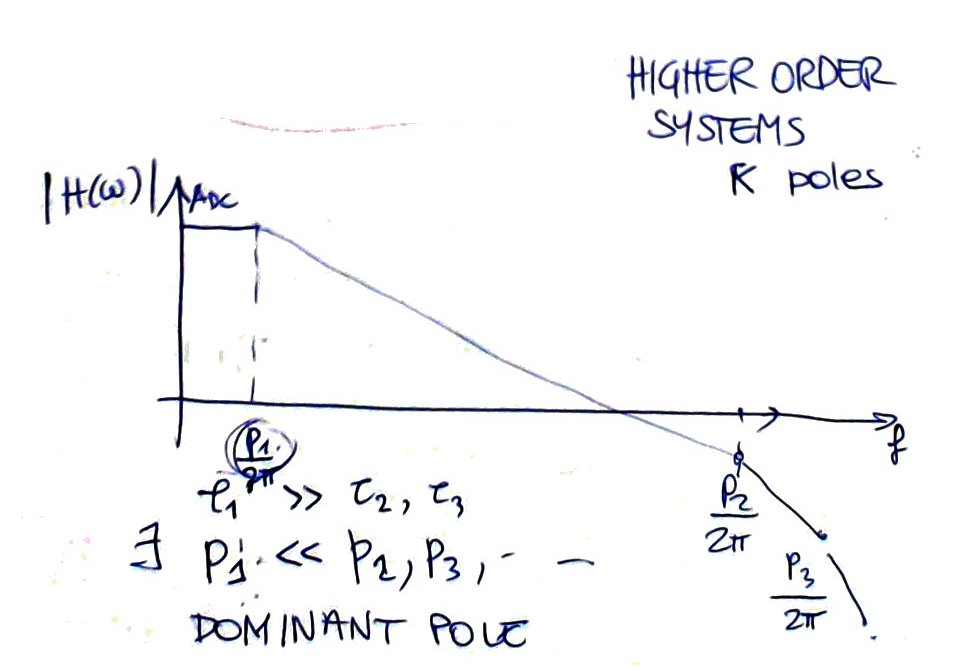 HIGHER ORDER
SYSTEMS
K poles
|H(ω)| ADC
f
P1/2π
τ1 >> τ2, τ3
P2/2π
∃ P1 << P2, P3, - -
P3/2π
DOMINANT POLE